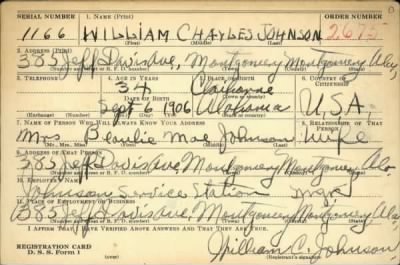 SERIAL NUMBER 1. NAME (Print) ORDER NUMBER
1166 WILLIAM CHAYLES JOHNSON 2615
(First) (Middle) (Last)
2. ADDRESS (Print)
385 Jeff Davis Ave, Montgomery Montgomery Ala,
3. TELEPHONE 4. AGE IN YEARS 5. PLACE OF BIRTH 6. COUNTRY OF CITIZENSHIP
34
DATE OF BIRTH
Sept 6 1906 Alabama U.S.A.
(Exchange) (Number) (Mo.) (Day) (Yr.) (State or country)
7. NAME OF PERSON WHO WILL ALWAYS KNOW YOUR ADDRESS 8. RELATIONSHIP OF THAT PERSON
Mrs. Mae Johnson Wife
(Mr., Mrs., Miss) (First) (Middle) (Last)
9. ADDRESS OF THAT PERSON
385 Jeff Davis Ave, Montgomery Montgomery Ala
10. EMPLOYER'S NAME
Johnson Service Station
11. PLACE OF EMPLOYMENT OR BUSINESS
385 Jeff Davis Ave, Montgomery Montgomery Ala,
I AFFIRM THAT I HAVE VERIFIED ABOVE ANSWERS AND THAT THEY ARE TRUE.
REGISTRATION CARD
D. S. S. Form 1
William C. Johnson
(Registrant's signature)